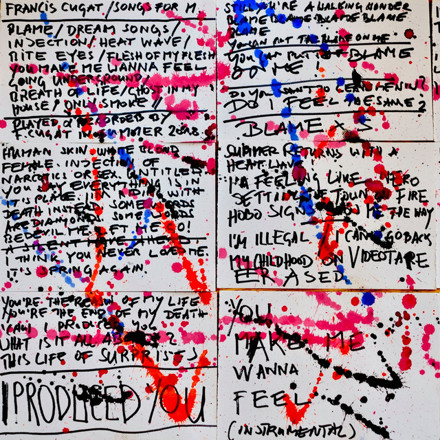 FRANCIS CUGAT/SONGS FOR M.
BLAME/DREAM SONGS/
INJECTION/HEAT WAVE/
NITE EYES/FLESH OF MY FLESH
YOU MAKE ME WANNA FEEL
GOING UNDERGROUND/
BREATH OF LIFE/GHOST IN MY
HOUSE/ONLY SMOKE//
PLAYED & RECORDED BY
F. CUGAT IN SUMMER
STILL YOU'RE A WALKING WONDER
BLAME BLAME BLAME BLAME
BLAME
YOU CAN PUT THE BLAME ON ME
YOU CAN PUT THE BLAME
ON ME
DO YOU WANT TO
DO I FEEL THE SAME?
BLAME US
HUMAN SKIN WHITE BLOOD
FEMALE. INJECTION OF
NARCOTICS OR SEX UNTITLED
YOU SAY EVERYTHING IS IN
ITS PLACE.
DEATH INSTEAD SOME WORDS
ARE DIAMONDS SOME WORDS
I THINK YOU NEVER LOVE ME.
IT'S SPRING AGAIN.
SUMMER RETURNS WITH A
HEAT WAVE
I'M FEELING LIKE HERO
SETTING FIRE
HOBO SIGN THE WAY
I'M ILLEGAL I CAN'T GO BACK
MY CHILDHOOD ON VIDEOTAPE
ERASED
YOU'RE THE REASON OF MY LIFE
YOU'RE THE END OF MY DEATH
I CAN PRODUCE YOU
WHAT IS IT ALL ABOUT?
THIS LIFE OF SURPRISES
I PRODUCED YOU
YOU
MAKE ME
WANNA
FEEL
(INSTRUMENTAL)